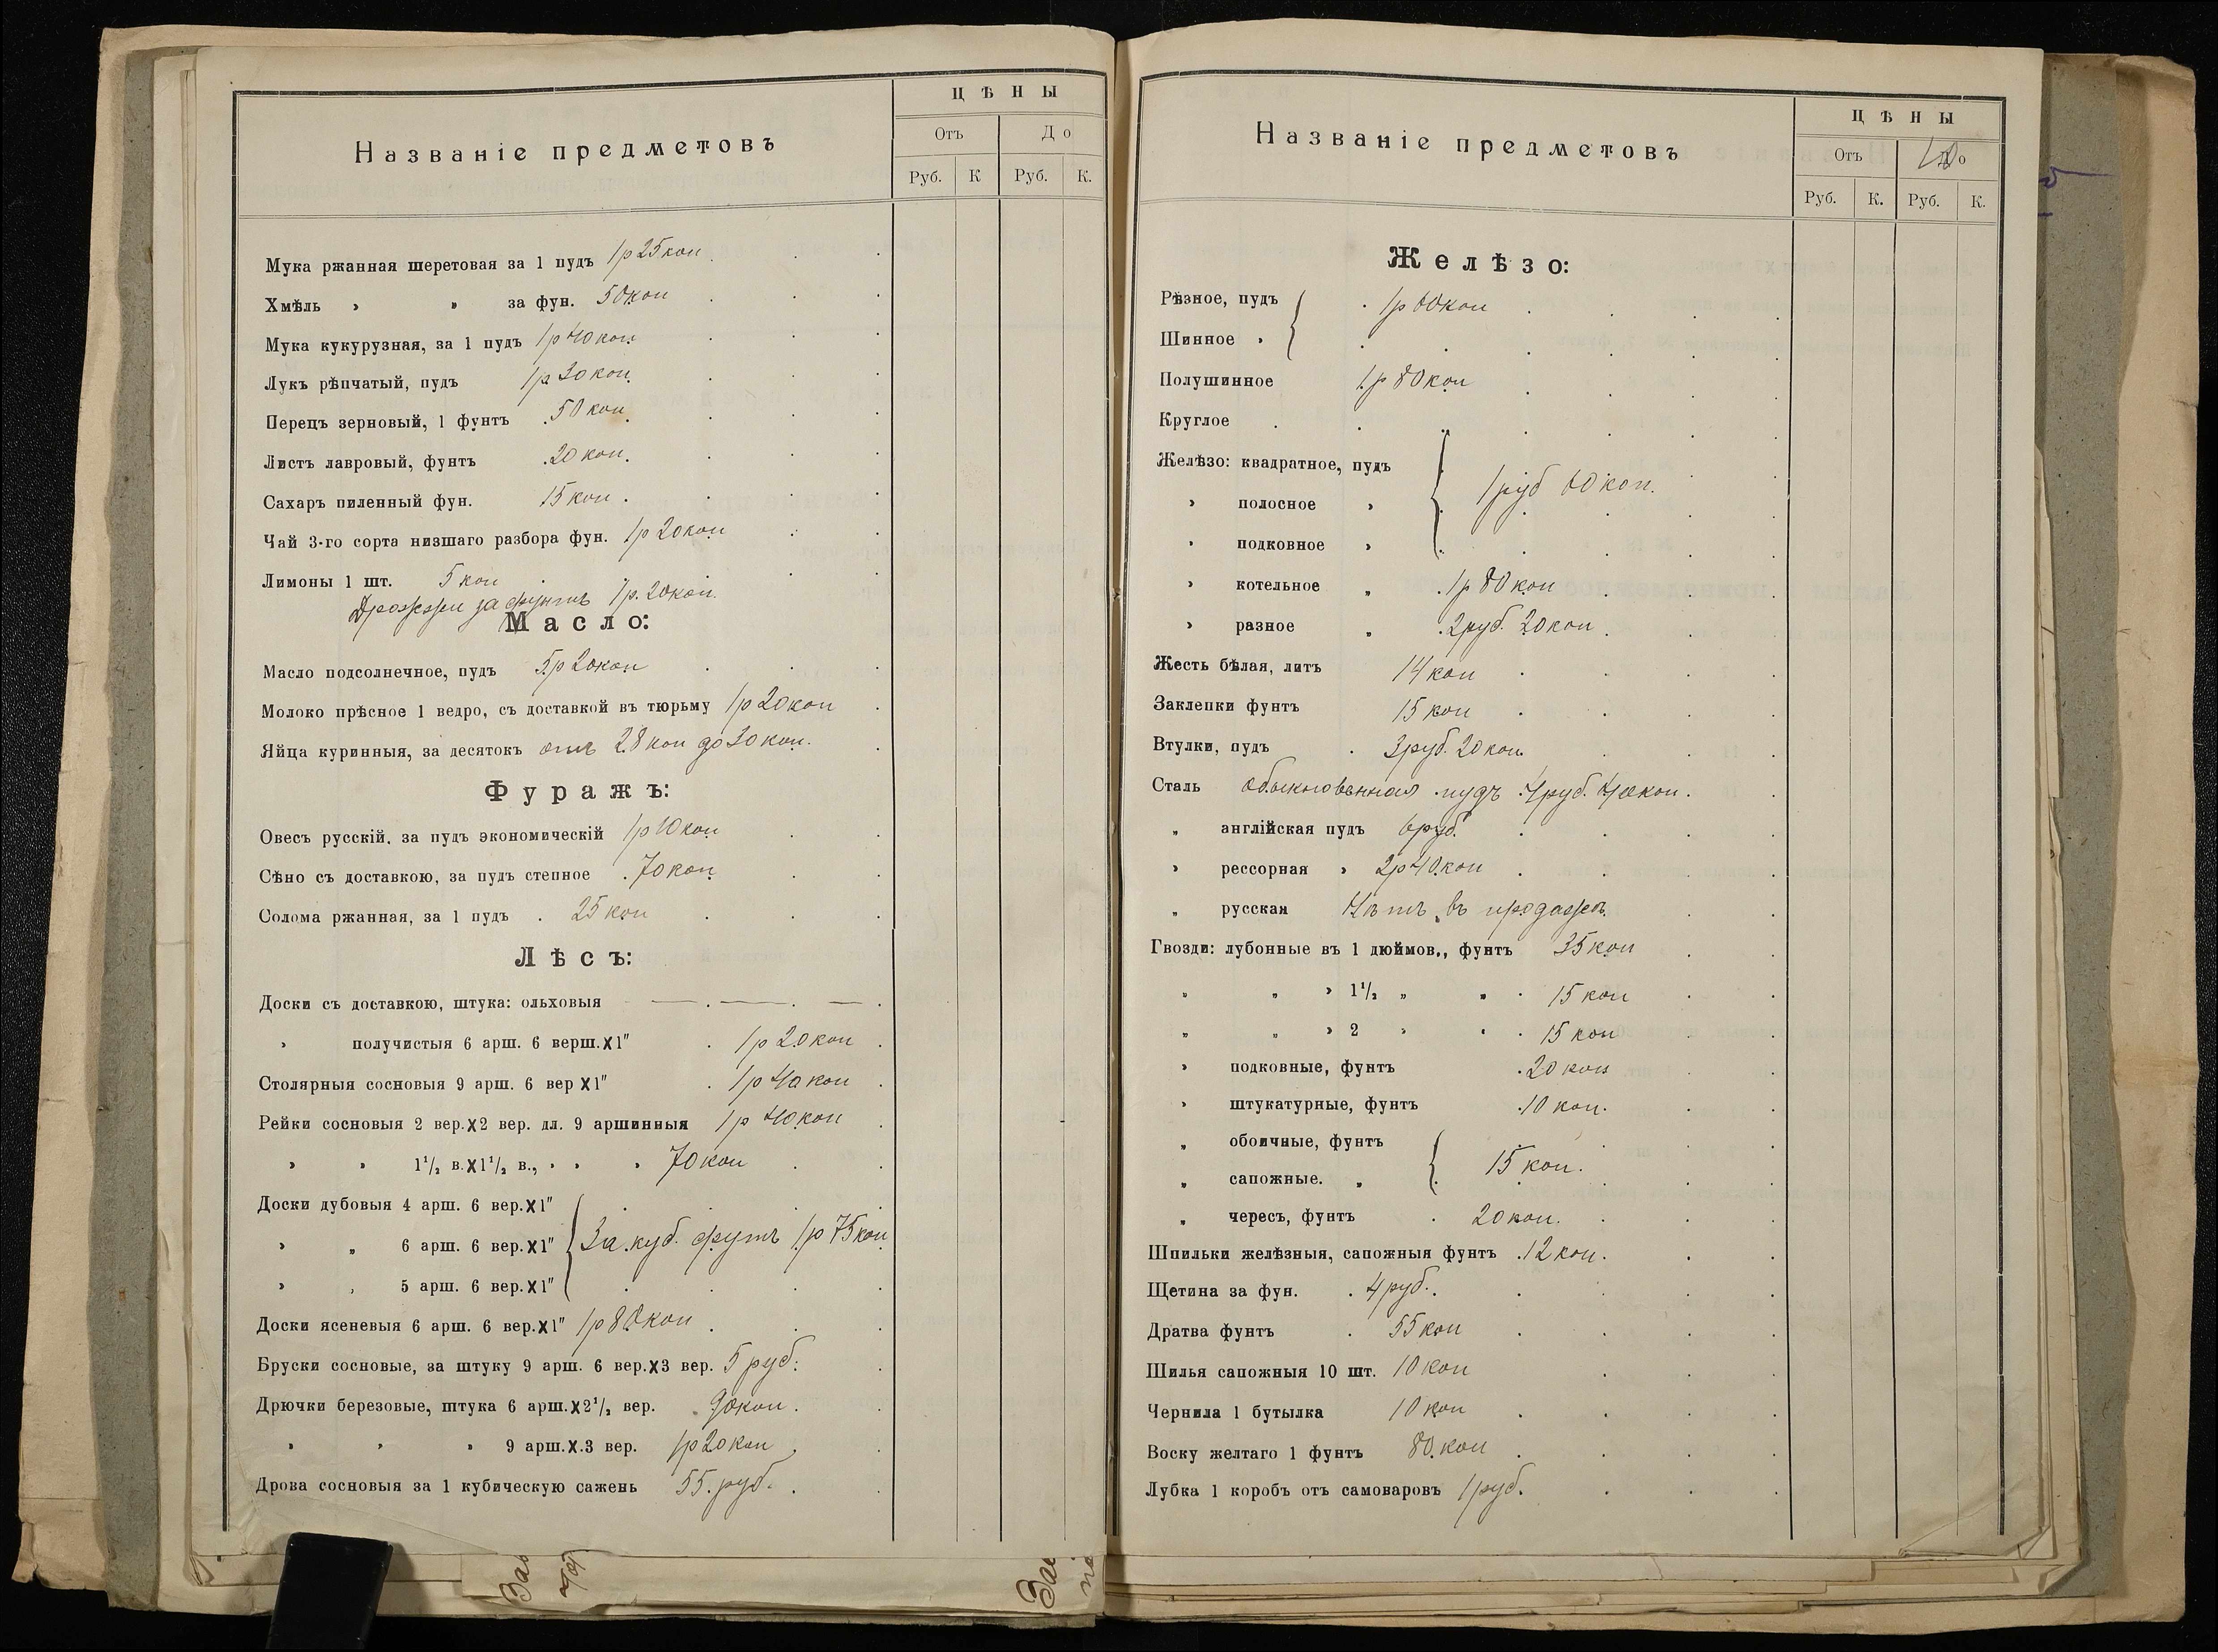 Названіе предметовъ
ЦѢНЫ
Отъ До
Руб. К Руб. К.
Мука ржанная шеретовая за 1 пудъ 1р 25 коп
Хмѣль › » за фун. 50 коп
Мука кукурузная, за 1 пудъ 1р 40 коп
Лукъ рѣпчатый, пудъ 1р 30 коп
Перецъ зерновый, 1 фунтъ 50 коп
Листъ лавровый, фунтъ 20 коп.
Сахаръ пиленный фун. 15 коп
Чай 3-го сорта низшаго разбора фун. 1р 20 коп
Лимоны 1 шт. 5 коп
Дрожжи за фунтъ 1р. 20 коп.
Масло:
Масло подсолнечное, пудъ 5р 20 коп
Молоко прѣсное 1 ведро, съ доставкой въ тюрьму 1р 20 коп
Яйца куринныя, за десятокъ отъ 28 коп до 30 коп.
Фуражъ:
Овесъ русскій, за пудъ экономическій 1р 10 коп
Сѣно съ доставкою, за пудъ степное 70 коп
Солома ржанная, за 1 пудъ 25 коп
Лѣсъ:
Доски съ доставкою, штука: ольховыя — — —
› получистыя 6 арш. 6 верш.X1" 1р 20 коп
Столярныя сосновыя 9 арш. 6 вер X1" 1р 40 коп
Рейки сосновыя 2 вер.X2 вер. дл. 9 аршинныя 1р 40 коп
› › 1½ в.X1½ в., › › › 70 коп
Доски дубовыя 4 арш. 6 вер.X1"
› „ 6 арш. 6 вер.X1" За куб. футъ 1р 75 коп
› , 5 арш. 6 вер.X1"
Доски ясеневыя 6 арш. 6 вер.X1" 1р 80 коп
Бруски сосновые, за штуку 9 арш. 6 вер.X3 вер. 5 руб.
Дрючки березовые, штука 6 арш.X2½ вер. 90 коп.
› › » 9 арш.X.3 вер. 1р 20 коп
Дрова сосновыя за 1 кубическую сажень 55 руб.
Названіе предметовъ
ЦѢНЫ
Отъ До
Руб. К. Руб. К.
Желѣзо:
Рѣзное, пудъ 1р 60 коп
Шинное ›
Полушинное 1р 80 коп
Круглое
Желѣзо: квадратное, пудъ
› полосное › 1 руб 60 коп.
› подковное ›
› котельное „ 1р 80 коп
› разное „ 2 руб. 20 коп
Жесть бѣлая, литъ 14 коп
Заклепки фунтъ 15 коп
Втулки, пудъ 3 руб. 20 коп
Сталь обыкновенная пудъ 4 руб. 40 коп.
„ англійская пудъ 6 руб.
› рессорная › 2р 40 коп
„ русская Нѣтъ въ продажѣ
Гвозди: лубонные въ 1 дюймов., фунтъ 35 коп
„ „ › 1½ „ „ 15 коп
„ „ › 2 › „ 15 коп
› подковные, фунтъ 20 коп
› штукатурные, фунтъ 10 коп.
„ обоичные, фунтъ
„ сапожные. „ 15 коп.
„ чересъ, фунтъ 20 коп.
Шпильки желѣзныя, сапожныя фунтъ 12 коп.
Щетина за фун. 4 руб.
Дратва фунтъ 55 коп
Шилья сапожныя 10 шт. 10 коп
Чернила 1 бутылка 10 коп
Воску желтаго 1 фунтъ 80 коп
Лубка 1 коробъ отъ самоваровъ 1 руб.